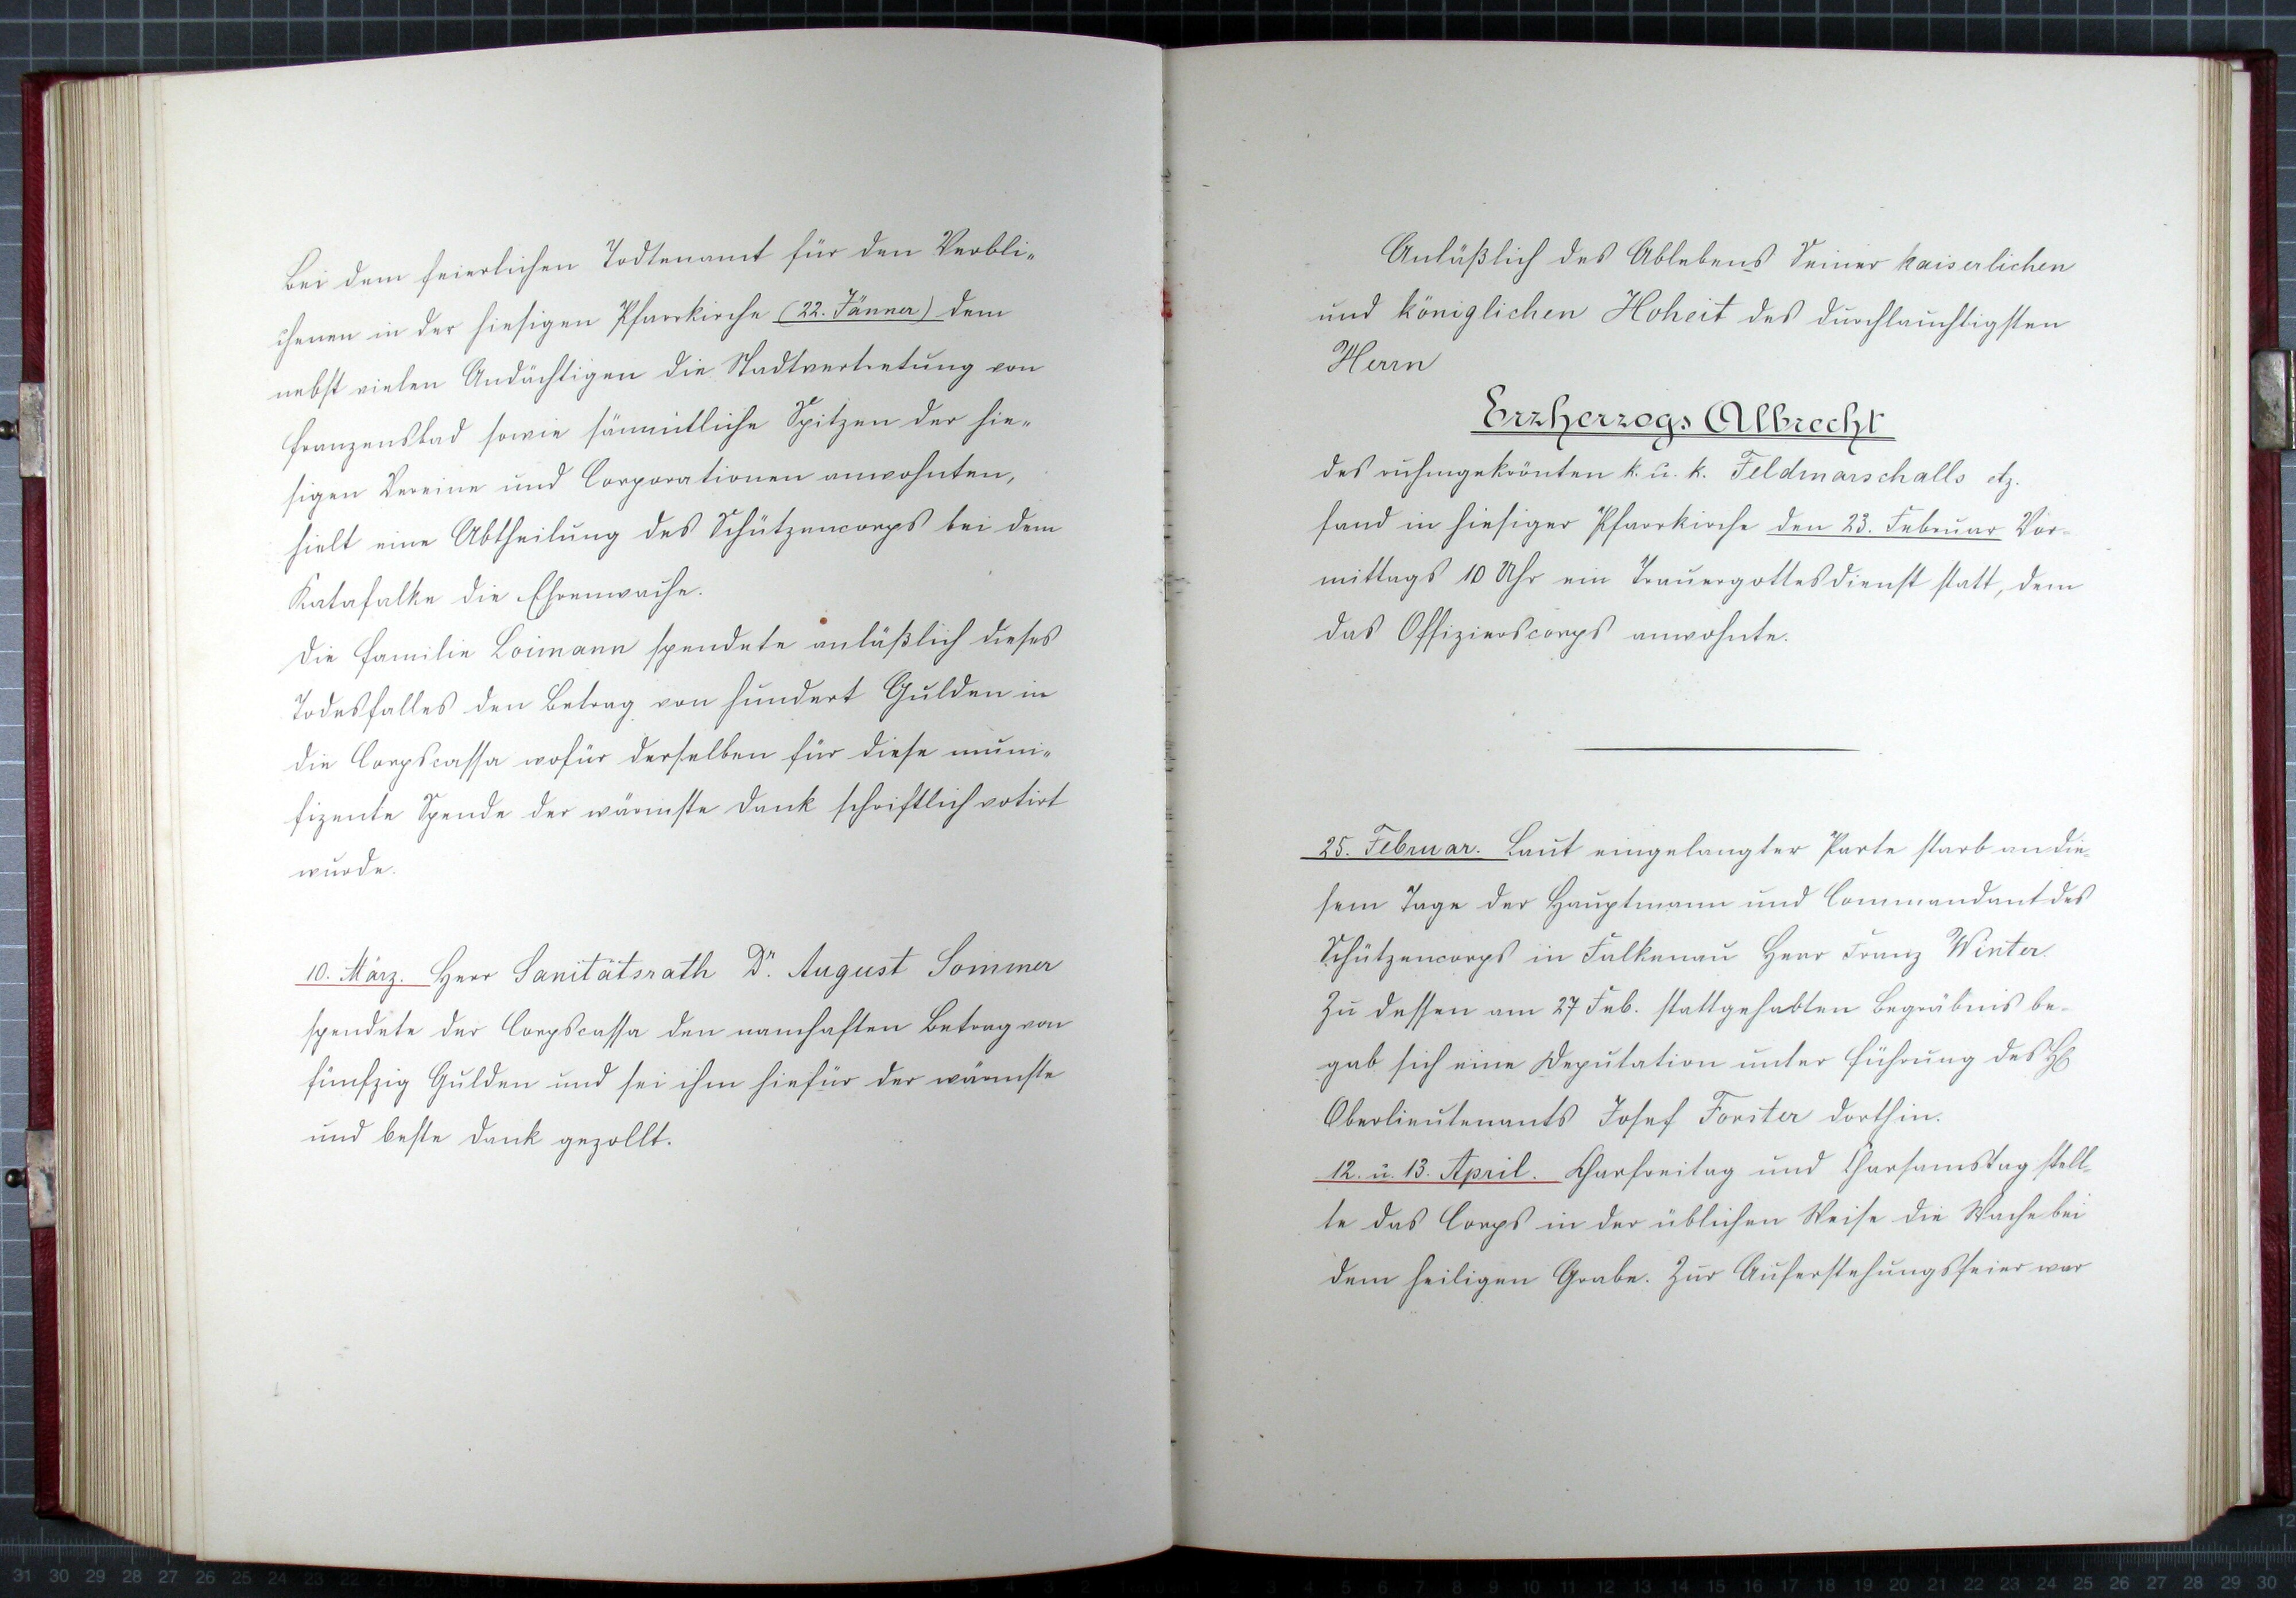 Bei dem feierlichen Todtenamt für den Verbli-
chenen in der hiesigen Pfarrkirche (22. Jänner) dem
nebst vielen Andächtigen die Stadtvertretung von
Franzensbad sowie sämmtliche Spitzen der hie-
sigen Vereine und Corporationen anwohnten,
hielt eine Abtheilung des Schützencorps bei dem
Katafalke die Ehrenwache.
Die Familie Loimann spendete anläßlich dieses
Todesfalles den Betrag von hundert Gulden in
die Corpscassa wofür derselben für diese muni-
fizente Spende der wärmste Dank schriftlich votirt
wurde.
10. März. Herr Sanitätsrath Dr. August Sommer
spendete der Corpscassa den namhaften Betrag von
fünfzig Gulden und sei ihm hiefür der wärmste
und beste Dank gezollt.
Anläßlich des Ablebens Seiner kaiserlichen
und königlichen Hoheit des durchlauchtigsten
Herrn
Erzherzogs Albrecht
des ruhmgekrönten k. u. k. Feldmarschalls etz.
fand in hiesiger Pfarrkirche den 23. Februar Vor-
mittags 10 Uhr ein Trauergottesdienst statt, dem
das Offizierscorps anwohnte.
25. Februar. Laut eingelangter Parte starb an die-
sem Tage der Hauptmann und Commandant des
Schützencorps in Falkenau Herr Franz Winter.
Zu dessen am 27 Feb. stattgehabten Begräbnis be-
gab sich eine Deputation unter Führung des H
Oberlieutenants Josef Forster dorthin.
12. u. 13. April. Charfreitag und Charsamstag stell-
te das Corps in der üblichen Weise die Wache bei
dem heiligen Grabe. Zur Auferstehungsfeier war
31 30 29 28 27 26 25 24 23 22
4 5 6 7 8 9 10 11 12 13 14 15 16 17 18 19 20 21 22 23 24 25 26 27 28 29 30
12